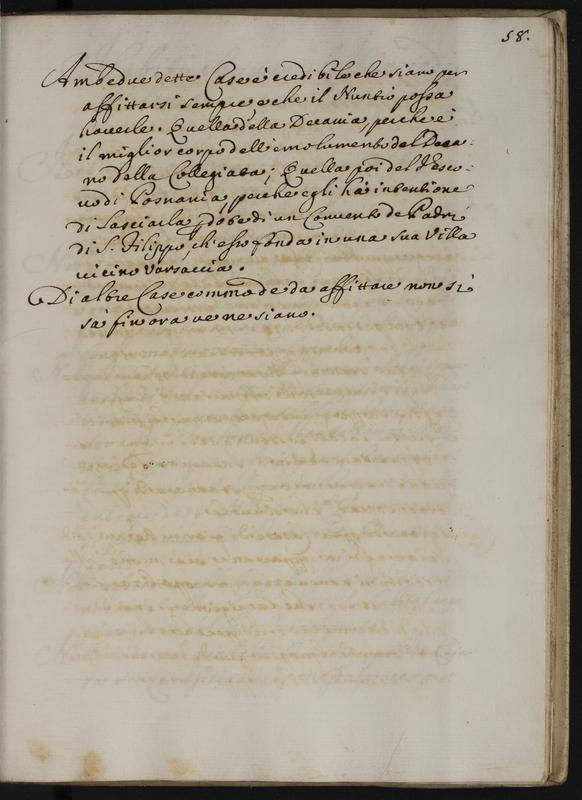 58.
Ambedue dette Case è credibile che siano per
affittarsi sempre e che il Nuntio possa
haverle. Quella della Decania, perche è
il miglior corpo dell'emolumento del Deca:
no della Collegiata; Quella poi del Vesco:
vo di Posnania, perche egli hà intentione
di lasciarla p dote di un Convento de Padri
di S. Filippo, ch'esso fonda in una sua Villa
vicino Varsavia.
Di altre Case commode da affittare non si
sà fin ora ve ne siano.